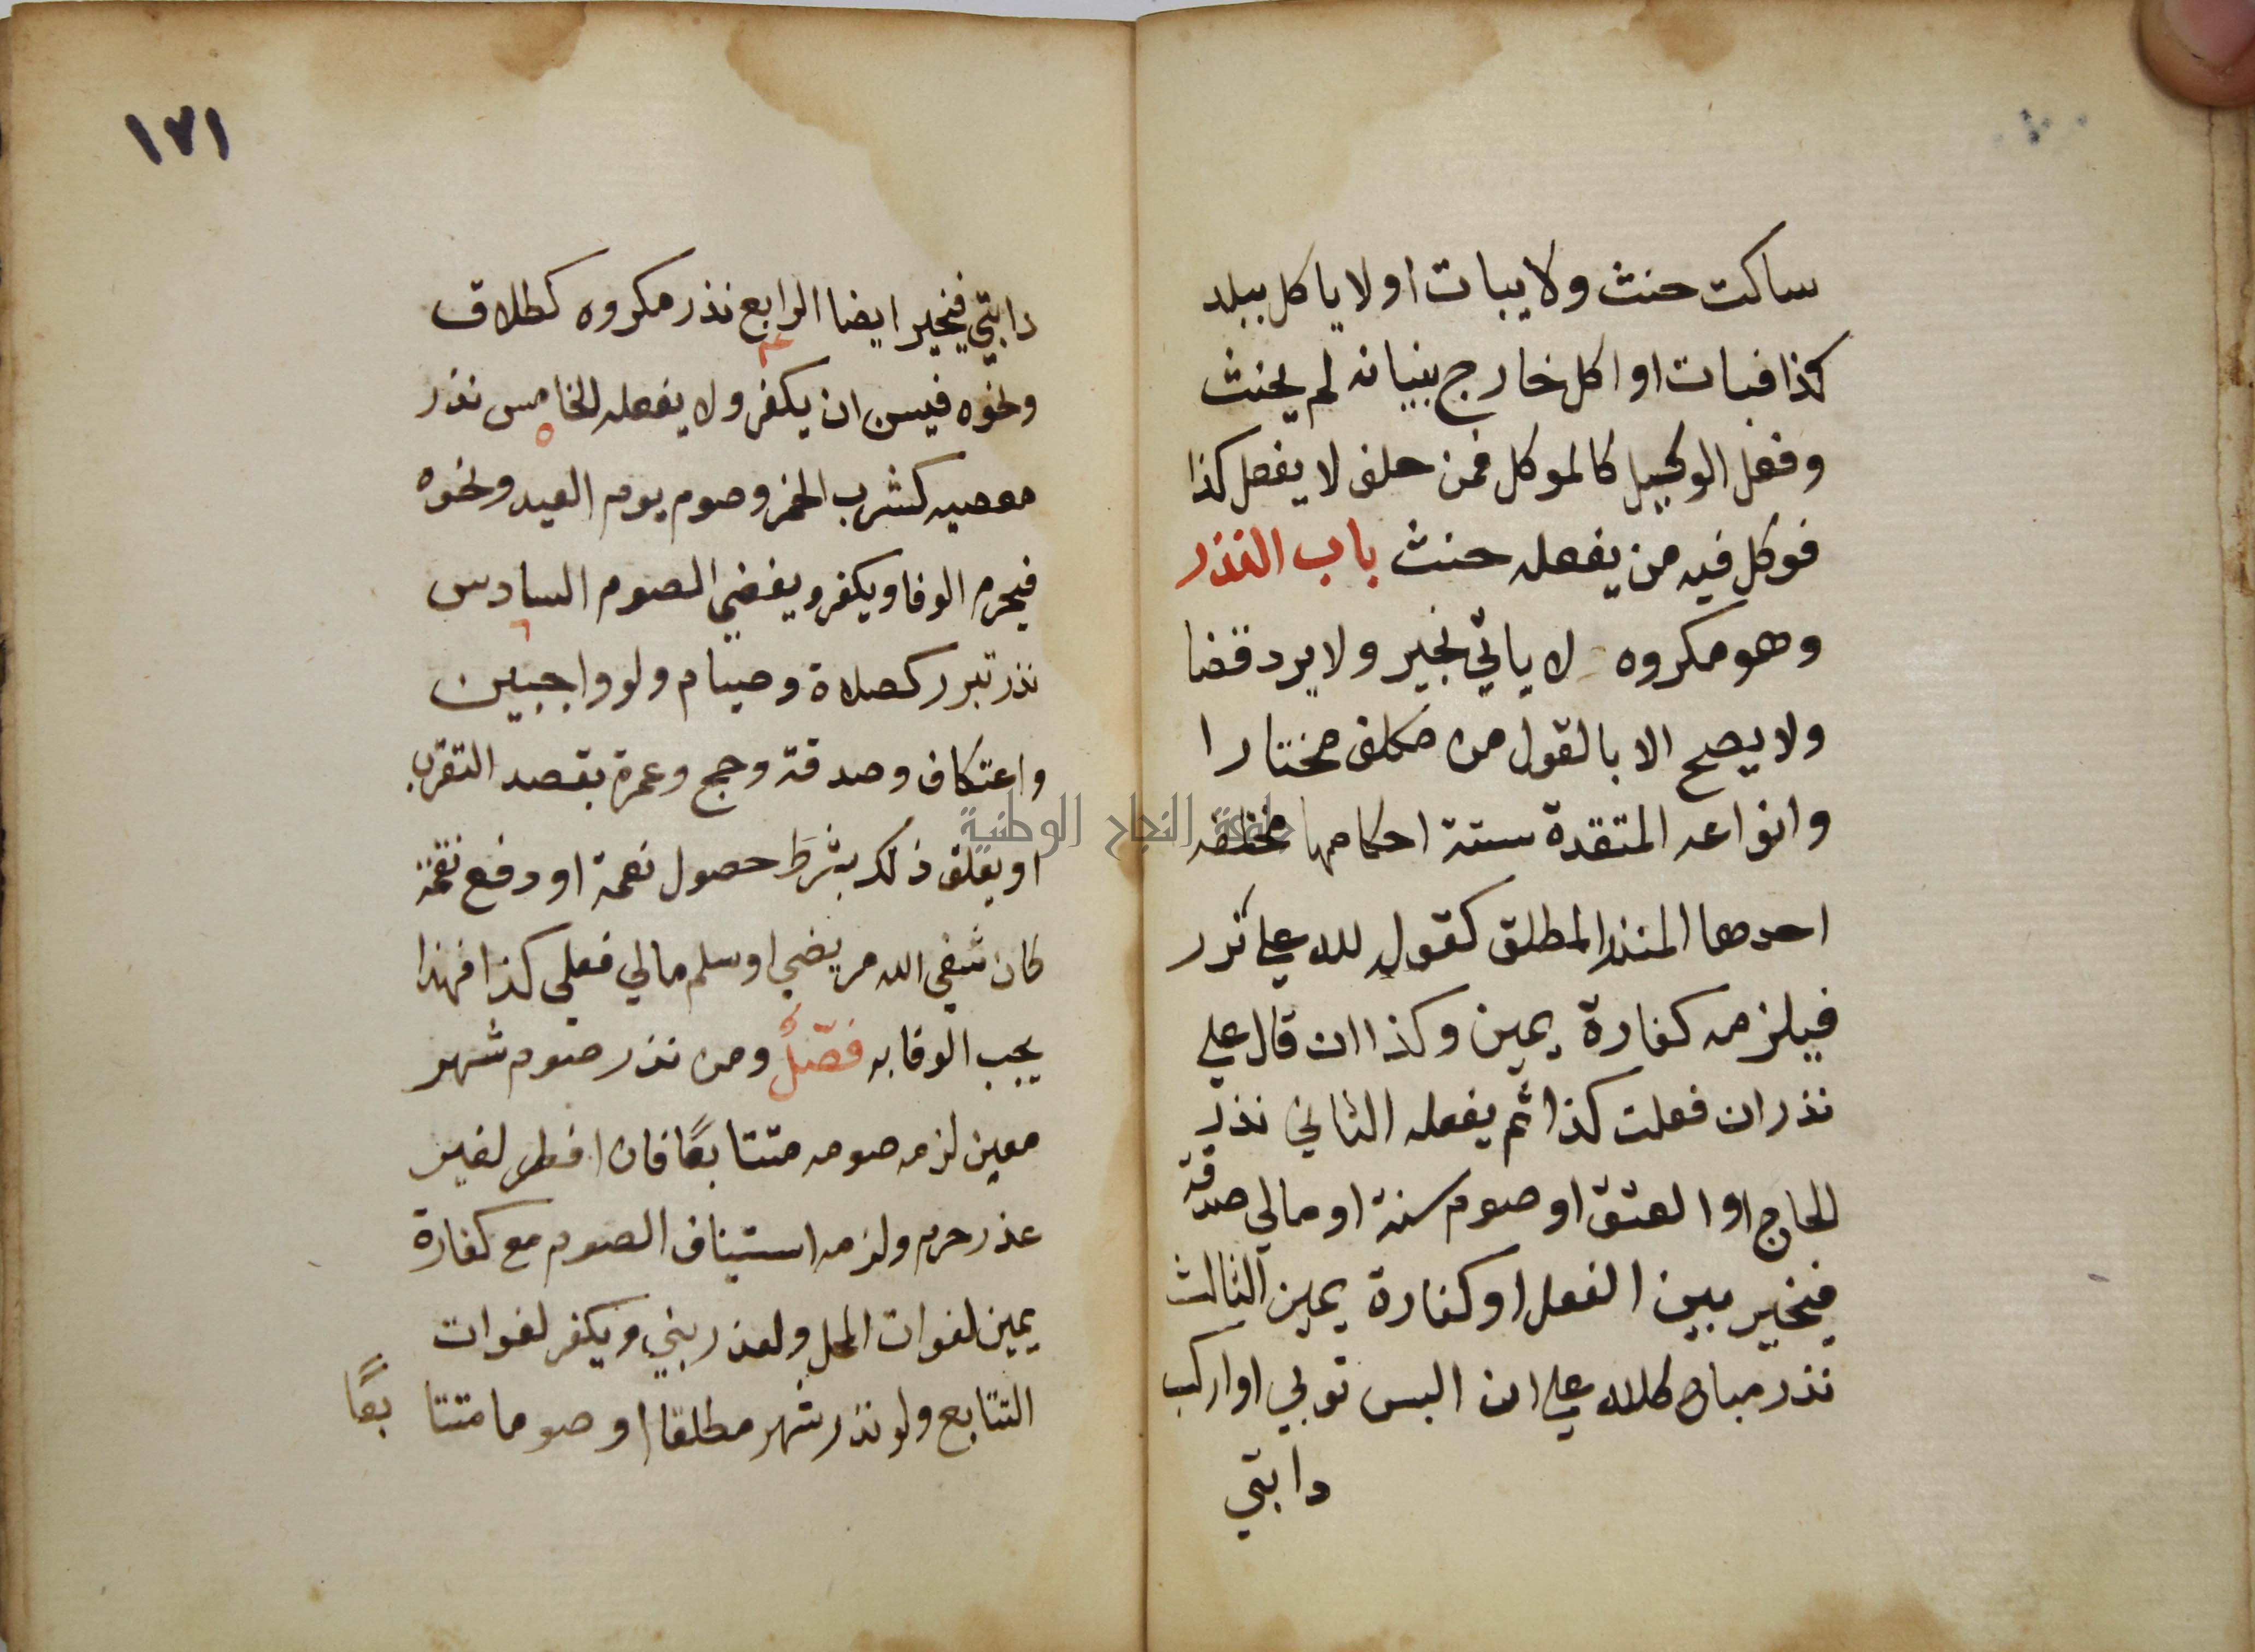 ساكت حنث ولا يبات او لا ياكل ببلد
كذا فبات او اكل خارج بنيانه لم يحنث
وفعل الوكيل كالموكل فمن حلف لا يفعل كذا
فوكل فيه من يفعله حنث باب النذر
وهو مكروه لا ياتي بخير ولا يرد قضا
ولا يصح الا بالقول من مكلف مختارا
وانواعه المنعقدة ستة احكامها مختلفه
احدها المنذر المطلق كقول لله علي نذر
فيلزمه كفارة يمين وكذا ان قال علي
نذر ان فعلت كذا ثم يفعله الثاني نذر
لحاج او العتق او صوم سنة او مالي صدقة
فيخير بين الفعل او كفارة يمين الثالث
نذر مباح كلله علي ان البس ثوبي او اركب
دابتي
١٧١
دابتي فيخير ايضا الرابع نذر مكروه كطلاق
ونحوه فيسن ان يكفر ولا يفعله الخامس نذر
معصيه كشرب الخمر وصوم يوم العيد ونحوه
فيحرم الوفا ويكفر ويقضي الصوم السادس
نذر تبرر كصلاة وصيام ولو واجبين
واعتكاف وصدقة وحج وعمرة بقصد التقرب
او يعلق ذلك بشرط حصول نعمة او دفع نقمة
كان شفي الله مريضي او سلم مالي فعلي كذا فهذا
يجب الوفا به فصل ومن نذر صوم شهر
معين لزمه صومه متتابعًا فان افطر لغير
عذر حرم ولزمه استيناف الصوم مع كفارة
يمين لفوات المحل ولعذر بني ويكفر لفوات
التتابع ولو نذر شهر مطلقا او صوما متتا بعًا
جامعة النجاح الوطنية